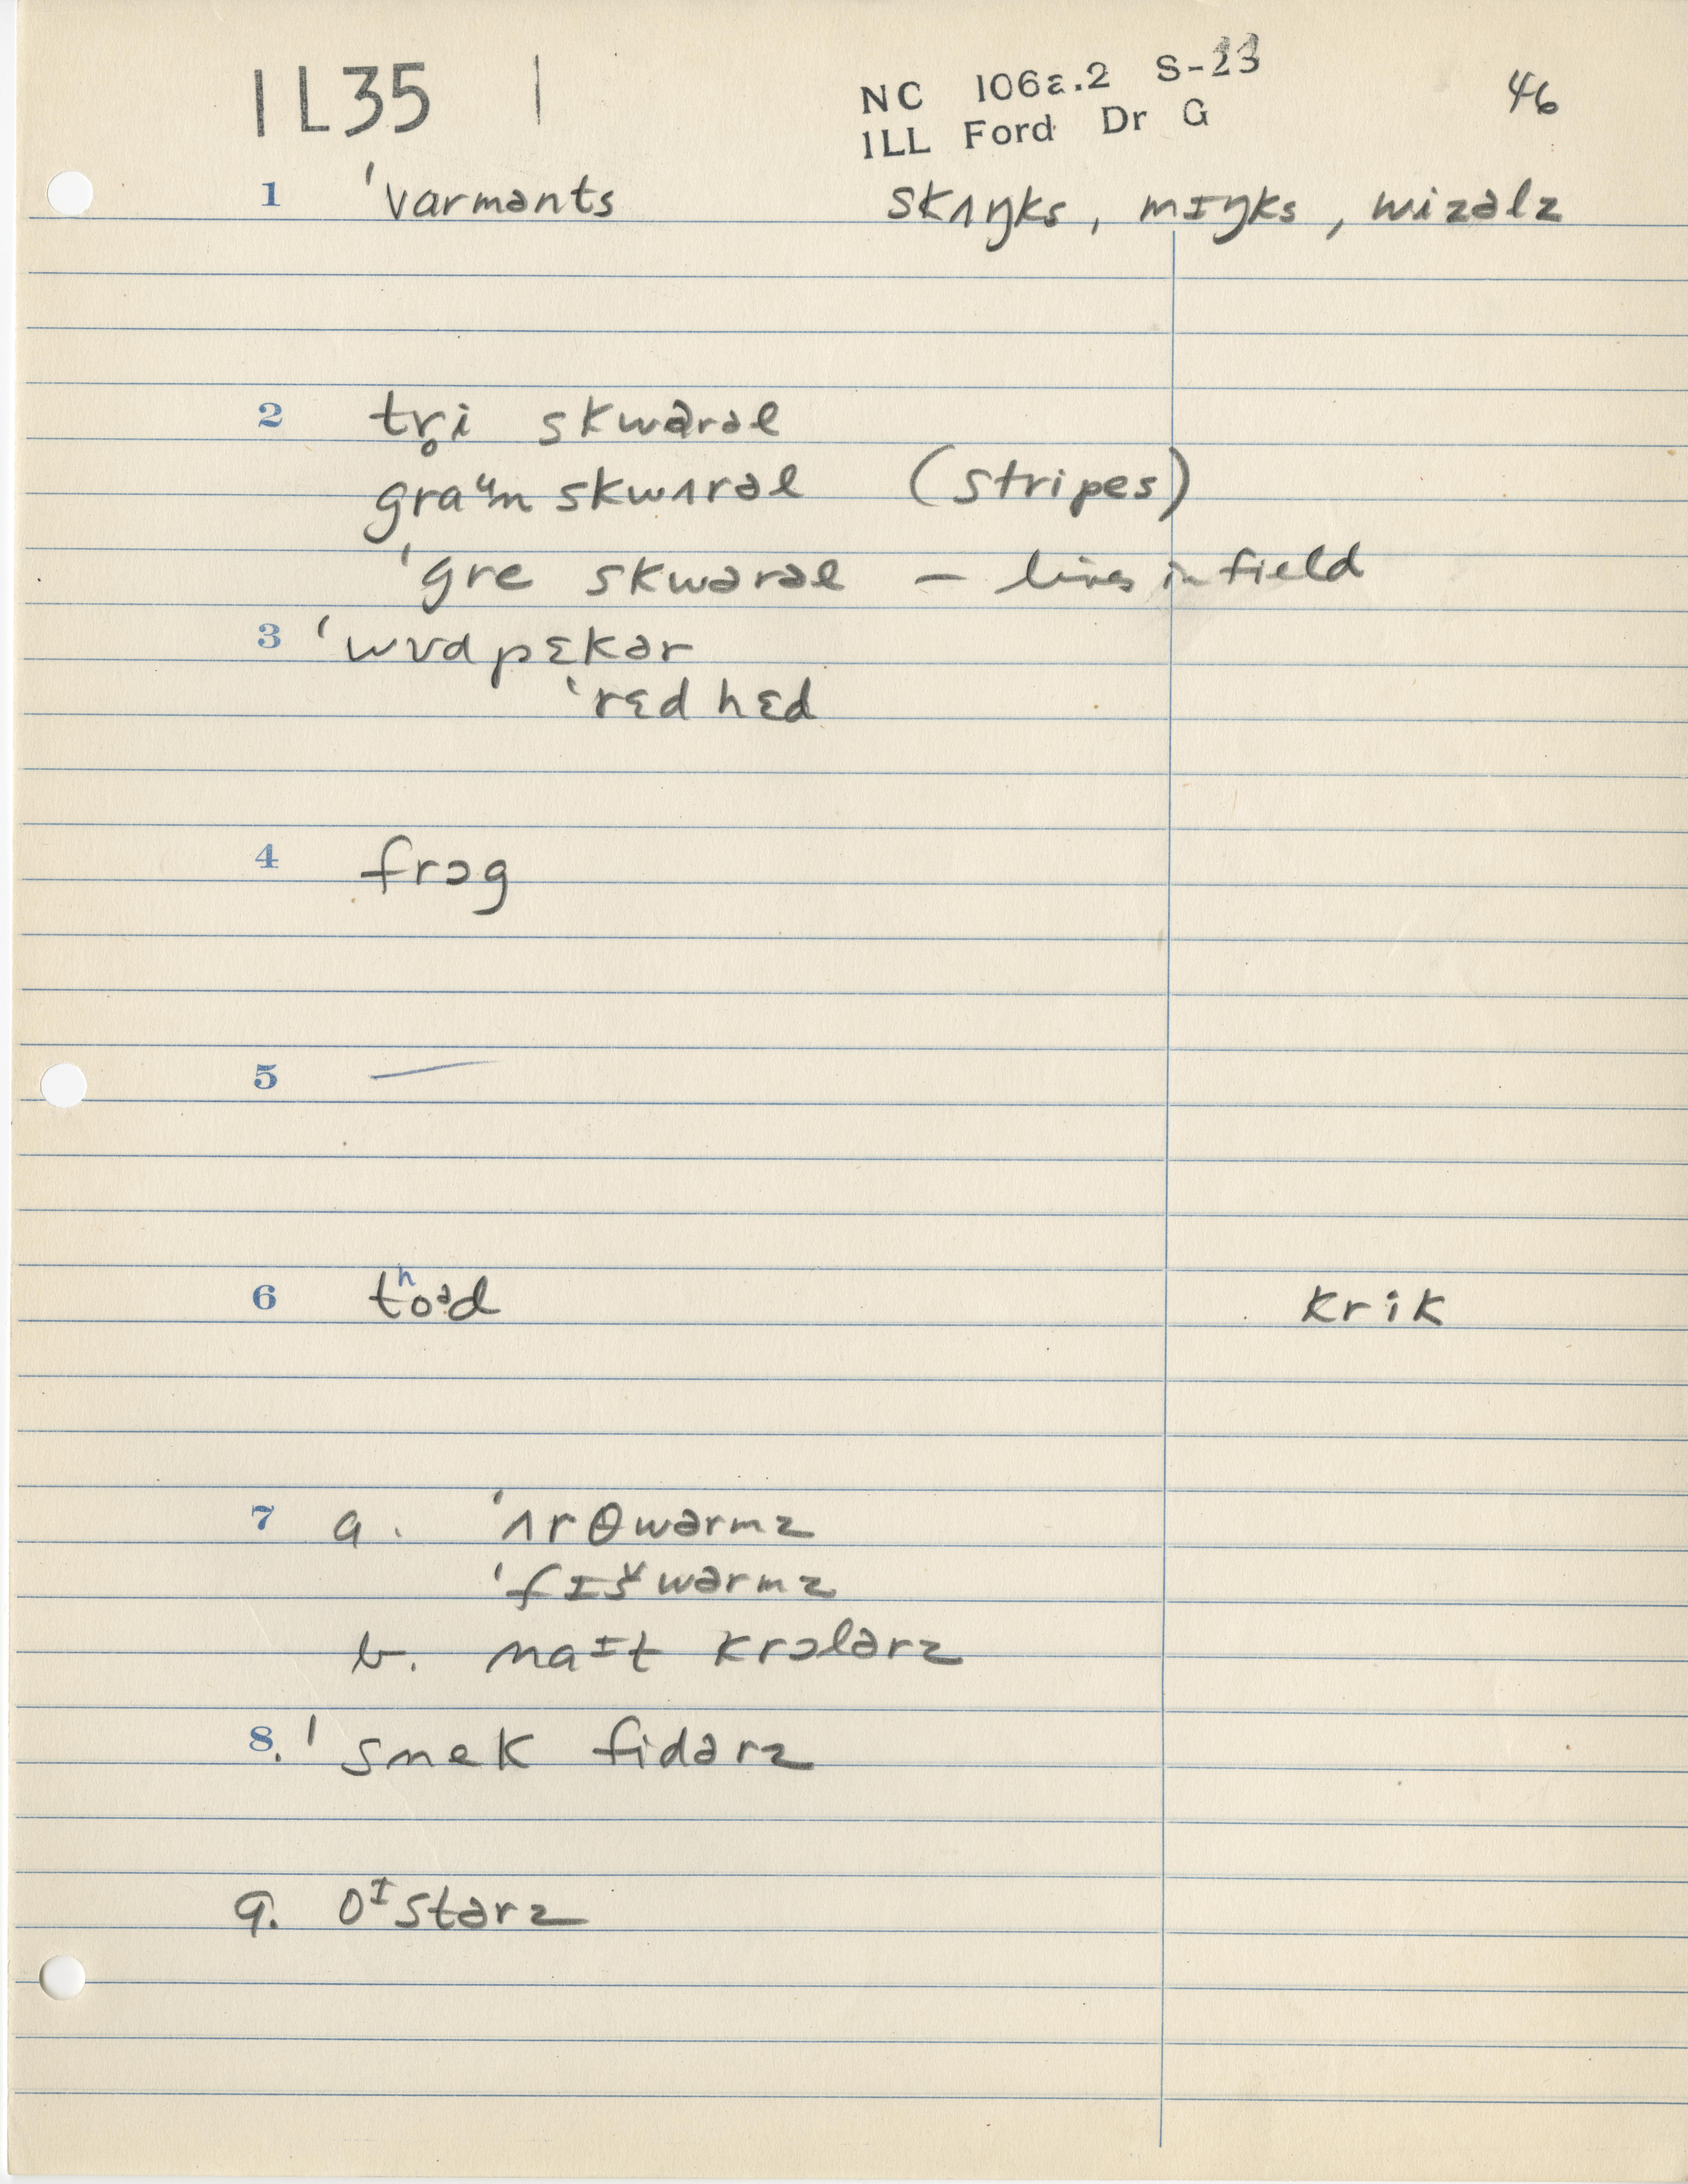 IL35 |
NC 106ε.2 S-23 46
ILL Ford Dr G
1 'varmənts skʌŋks, mɪŋks, wizəlz
2 tr̥i skwərəl
graᵘn skwʌrəl (stripes)
'gre skwərəl – lives in field
3 'wʊdpɛkər
'rɛd hɛd
4 frɔg
5 —
6 tʰoᵊd krik
7 a. 'ʌrθwərmz
'fɪšwərmz
b. naɪt krɔlərz
8. 'snek fidərz
9. oᶦstərz